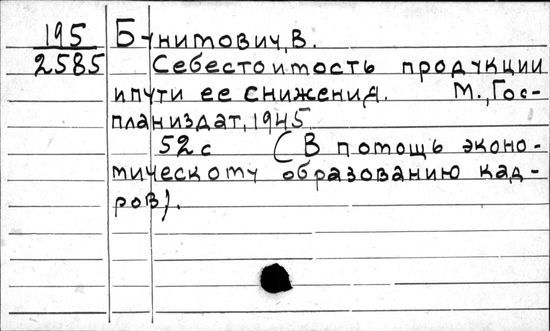 195 Бунитович, В.
2585 Себестоимость продукции
и пути ее снижения. М., Гос-
планиздат, 1945.
52 с (В помощь эконо-
мическому образованию кад-
ров).